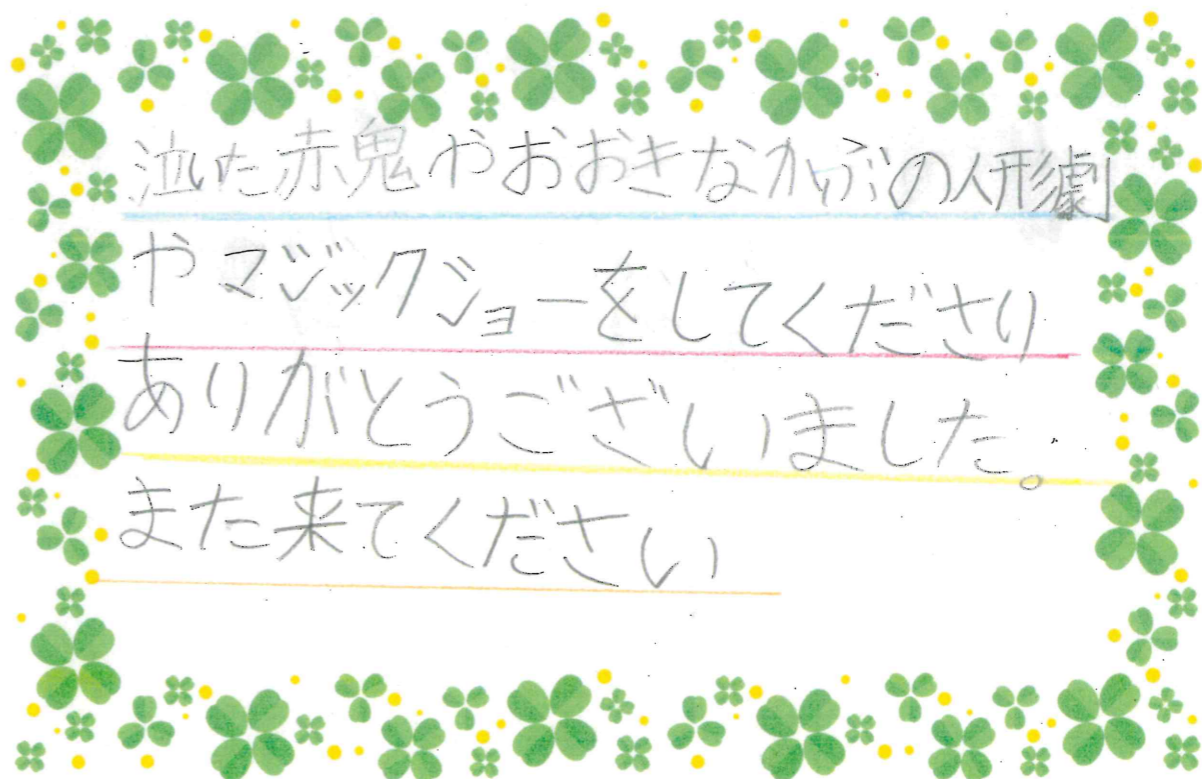 泣た赤鬼やおおきなかぶの人形劇
やマジックショーをしてくださり
ありがとうございました。
また来てください